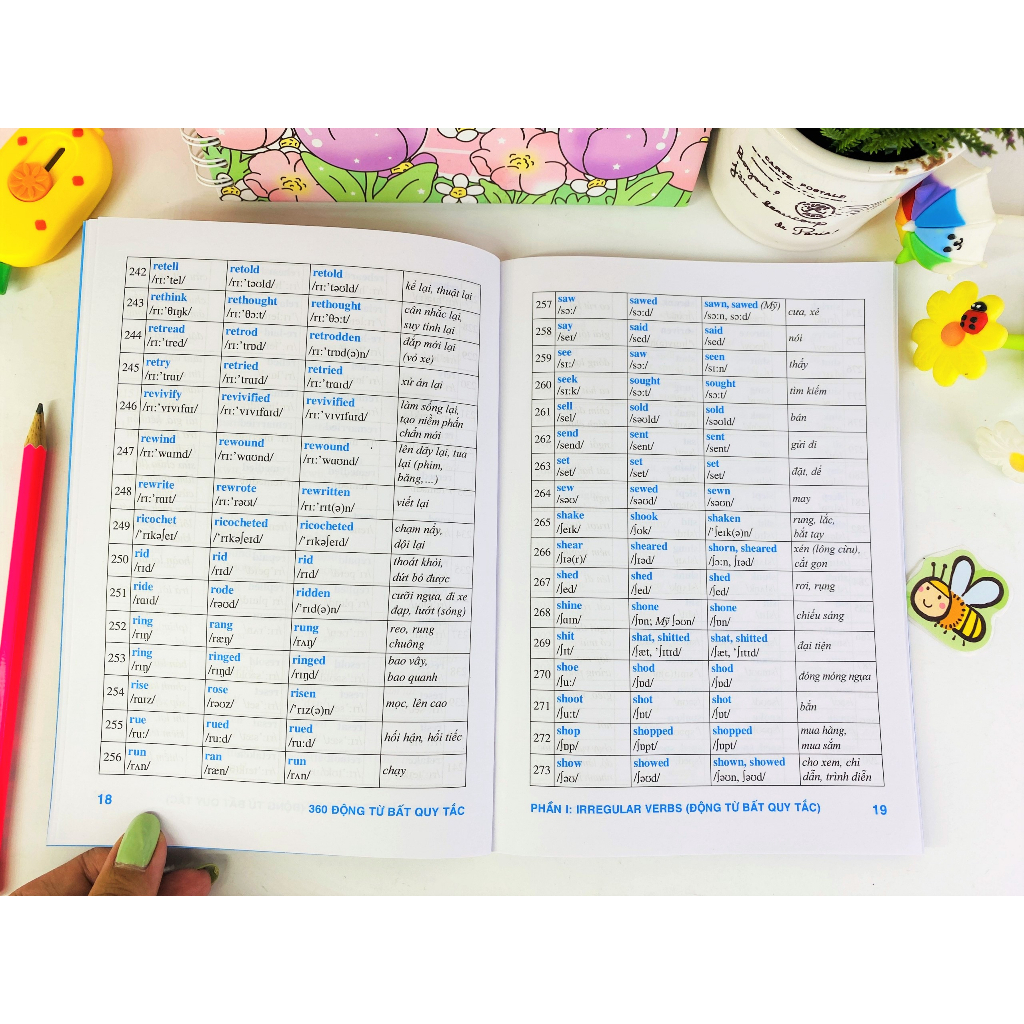 CARTE POSTALE
242 retell retold retold kể lại, thuật lại
/rɪːˈtel/ /rɪːˈtəʊld/ /rɪːˈtəʊld/
243 rethink rethought rethought cân nhắc lại,
/rɪːˈθɪŋk/ /rɪːˈθɔːt/ /rɪːˈθɔːt/ suy tính lại
244 retread retrod retrodden đắp mới lại
/rɪːˈtred/ /rɪːˈtrɒd/ /rɪːˈtrɒd(ə)n/ (vỏ xe)
245 retry retried retried xử án lại
/rɪːˈtraɪ/ /rɪːˈtraɪd/ /rɪːˈtraɪd/
246 revivify revivified revivified làm sống lại,
/rɪːˈvɪvɪfaɪ/ /rɪːˈvɪvɪfaɪd/ /rɪːˈvɪvɪfaɪd/ tạo niềm phấn
chấn mới
247 rewind rewound rewound lên dây lại, tua
/rɪːˈwaɪnd/ /rɪːˈwaʊnd/ /rɪːˈwaʊnd/ lại (phim,
băng,...)
248 rewrite rewrote rewritten viết lại
/rɪːˈraɪt/ /rɪːˈrəʊt/ /rɪːˈrɪt(ə)n/
249 ricochet ricocheted ricocheted chạm nẩy,
/ˈrɪkəʃeɪ/ /ˈrɪkəʃeɪd/ /ˈrɪkəʃeɪd/ dội lại
250 rid rid rid thoát khỏi,
/rɪd/ /rɪd/ /rɪd/ dứt bỏ được
251 ride rode ridden cưỡi ngựa, đi xe
/raɪd/ /rəʊd/ /ˈrɪd(ə)n/ đạp, lướt (sóng)
252 ring rang rung reo, rung
/rɪŋ/ /ræŋ/ /rʌŋ/ chuông
253 ring ringed ringed bao vây,
/rɪŋ/ /rɪŋd/ /rɪŋd/ bao quanh
254 rise rose risen mọc, lên cao
/raɪz/ /rəʊz/ /ˈrɪz(ə)n/
255 rue rued rued hối hận, hối tiếc
/ruː/ /ruːd/ /ruːd/
256 run ran run chạy
/rʌn/ /ræn/ /rʌn/
18
360 ĐỘNG TỪ BẤT QUY TẮC
257 saw sawed sawn, sawed (Mỹ) cưa, xẻ
/sɔː/ /sɔːd/ /sɔːn, sɔːd/
258 say said said nói
/seɪ/ /sed/ /sed/
259 see saw seen thấy
/sɪː/ /sɔː/ /sɪːn/
260 seek sought sought tìm kiếm
/sɪːk/ /sɔːt/ /sɔːt/
261 sell sold sold bán
/sel/ /səʊld/ /səʊld/
262 send sent sent gửi đi
/send/ /sent/ /sent/
263 set set set đặt, để
/set/ /set/ /set/
264 sew sewed sewn may
/səʊ/ /səʊd/ /səʊn/
265 shake shook shaken rung, lắc,
/ʃeɪk/ /ʃʊk/ /ˈʃeɪk(ə)n/ bắt tay
266 shear sheared shorn, sheared xén (lông cừu),
/ʃɪə(r)/ /ʃɪəd/ /ʃɔːn, ʃɪəd/ cắt gọn
267 shed shed shed rơi, rụng
/ʃed/ /ʃed/ /ʃed/
268 shine shone shone chiếu sáng
/ʃaɪn/ /ʃɒn; Mỹ ʃəʊn/ /ʃɒn/
269 shit shat, shitted shat, shitted đại tiện
/ʃɪt/ /ʃæt, ˈʃɪtɪd/ /ʃæt, ˈʃɪtɪd/
270 shoe shod shod đóng móng ngựa
/ʃuː/ /ʃɒd/ /ʃɒd/
271 shoot shot shot bắn
/ʃuːt/ /ʃɒt/ /ʃɒt/
272 shop shopped shopped mua hàng,
/ʃɒp/ /ʃɒpt/ /ʃɒpt/ mua sắm
273 show showed shown, showed cho xem, chỉ
/ʃəʊ/ /ʃəʊd/ /ʃəʊn, ʃəʊd/ dẫn, trình diễn
PHẦN I: IRREGULAR VERBS (ĐỘNG TỪ BẤT QUY TẮC)
19